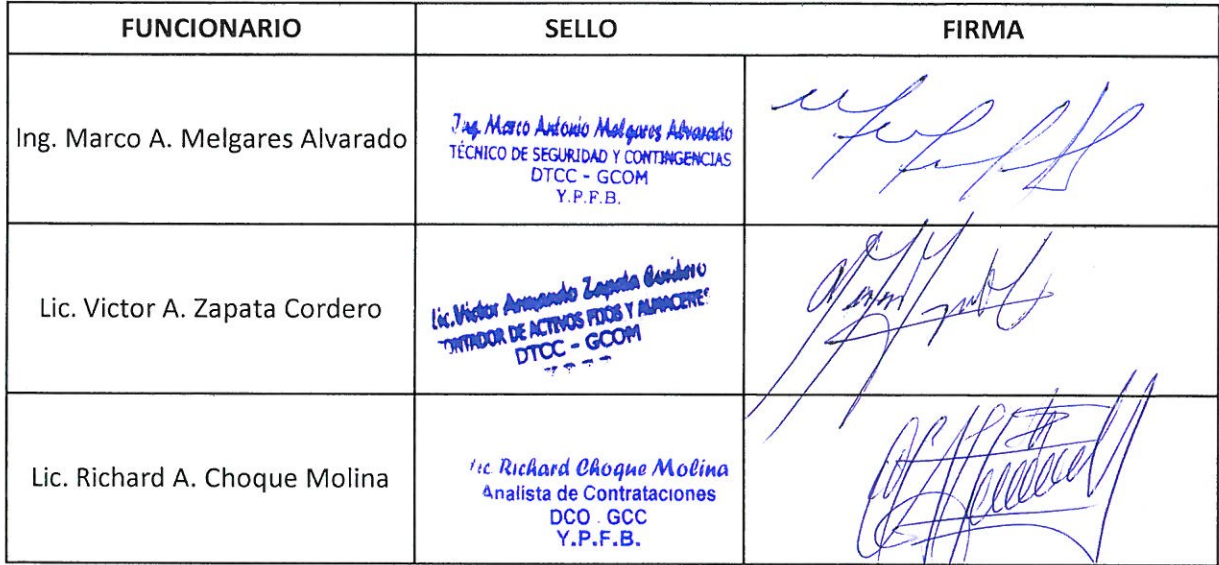 FUNCIONARIO SELLO FIRMA
Ing. Marco A. Melgares Alvarado
Ing. Marco Antonio Melgares Alvarado
TÉCNICO DE SEGURIDAD Y CONTINGENCIAS
DTCC - GCOM
Y.P.F.B.
Lic. Victor A. Zapata Cordero
Lic. Victor Armando Zapata Cordero
CONTADOR DE ACTIVOS FIJOS Y ALMACENES
DTCC - GCOM
Lic. Richard A. Choque Molina
Lic. Richard Choque Molina
Analista de Contrataciones
DCO - GCC
Y.P.F.B.